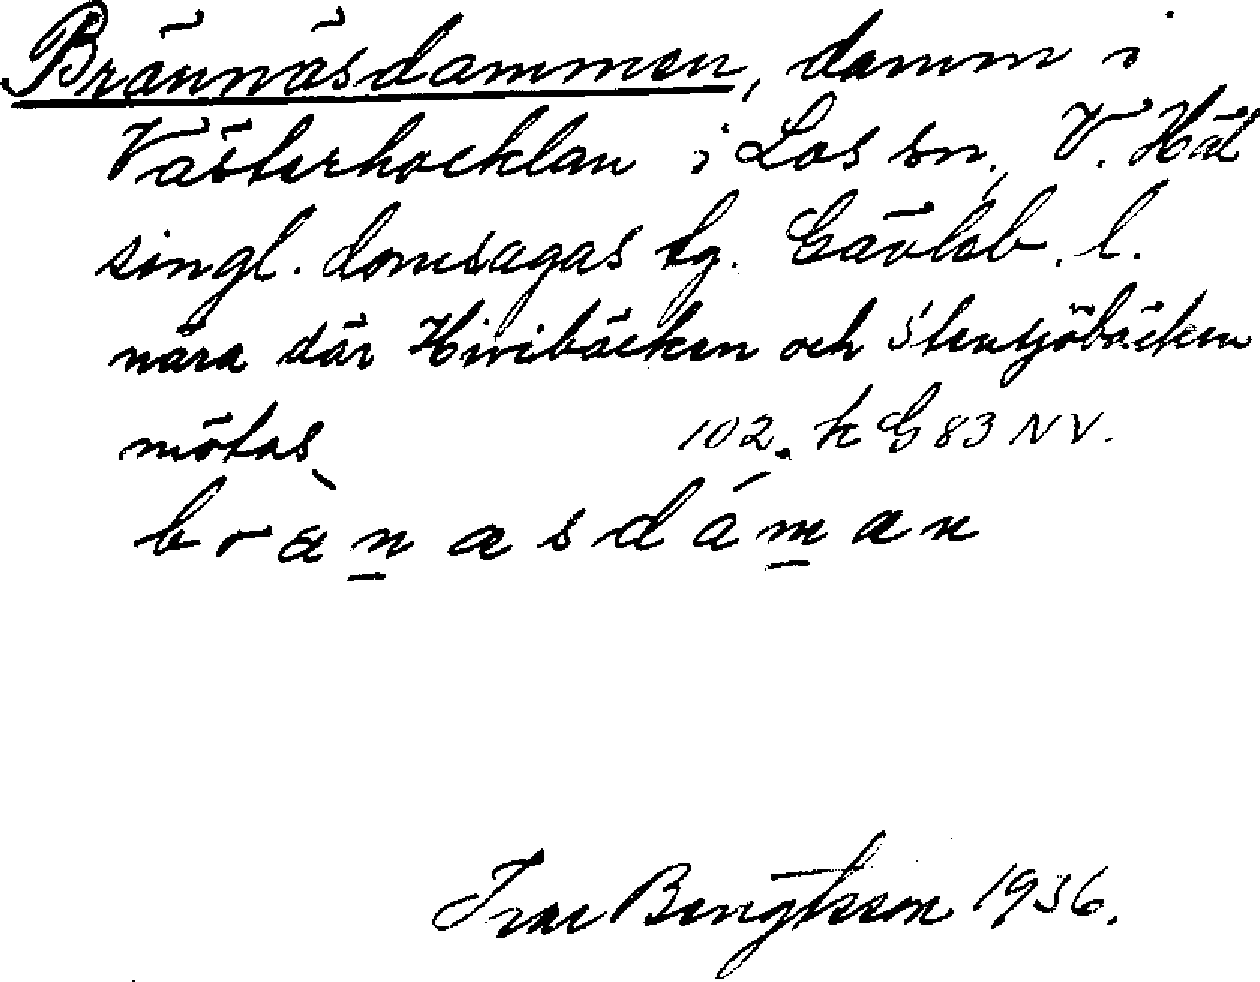 Brännäsdammen, damm i
Västerhocklan i Los sn, V. Häl
singl. domsagas tg. Gävleb. l.
nära där Hivibäcken och Stensjöbäcken
mötas 102. k G 83 NV.
Ivar Bengtsson 1936.